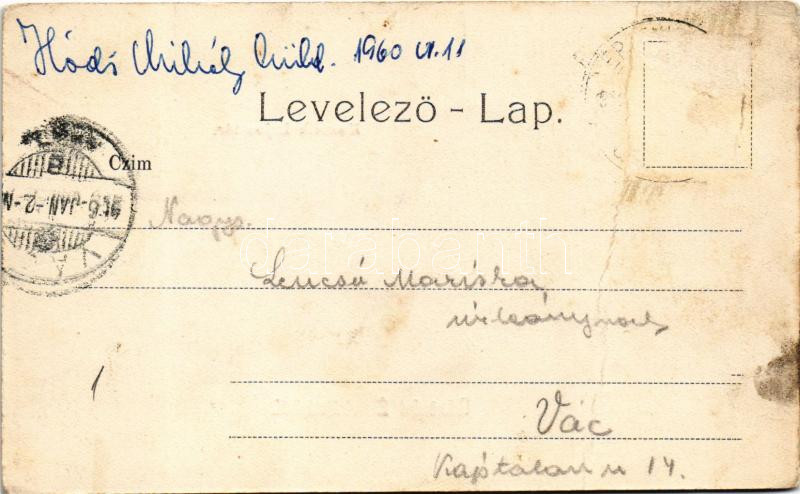 Hódi Mihály küld. 1960 VI. 11
Levelező - Lap.
Czim
JAN.-2.
Nagys.
Lencsó Mariska
úrleánynak
Vác
Káptalan u 14.
1
darabanth